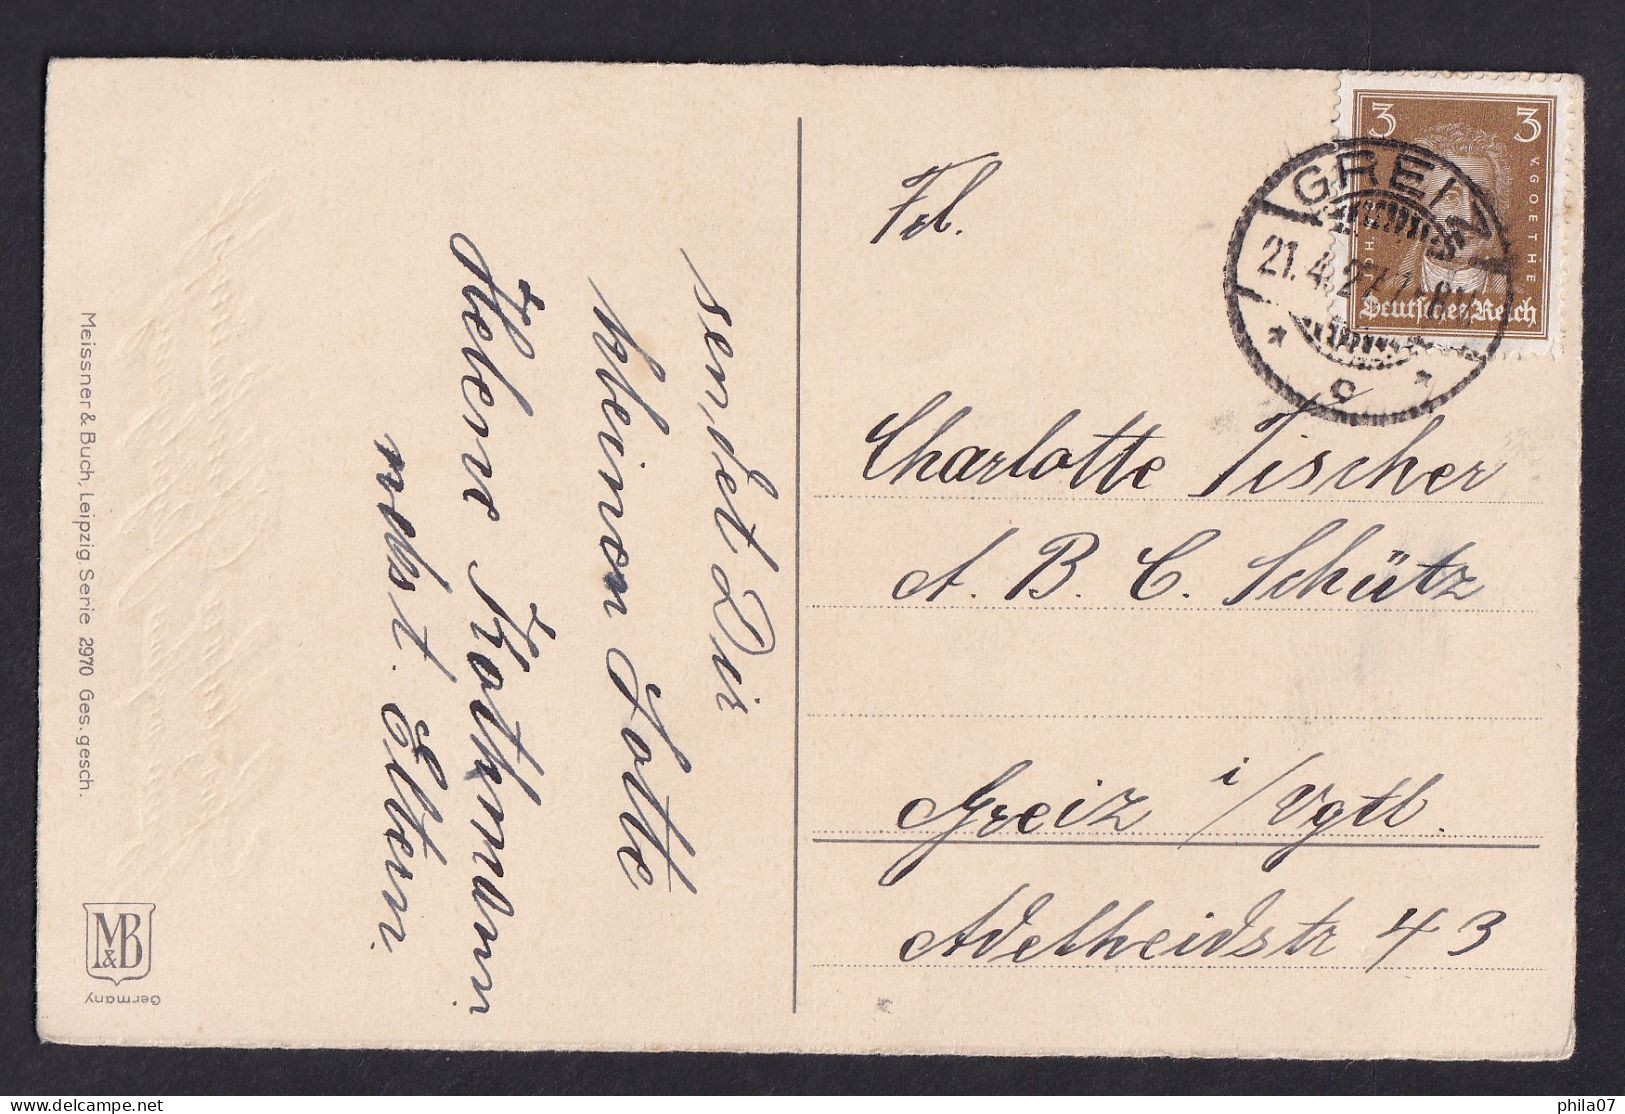 sendet Dir
kleinen Lotte
Helene Rothmann
nebst. Eltern.
Meissner & Buch, Leipzig. Serie 2970 Ges. gesch.
M&B
Germany
3 3
V. GOETHE
Deutsches Reich
GREIZ
21.4.27
c
Frl.
Charlotte Tischer
A. B. C. Schütz
Greiz i/Vgtl.
Adelheidstr 43
phila07